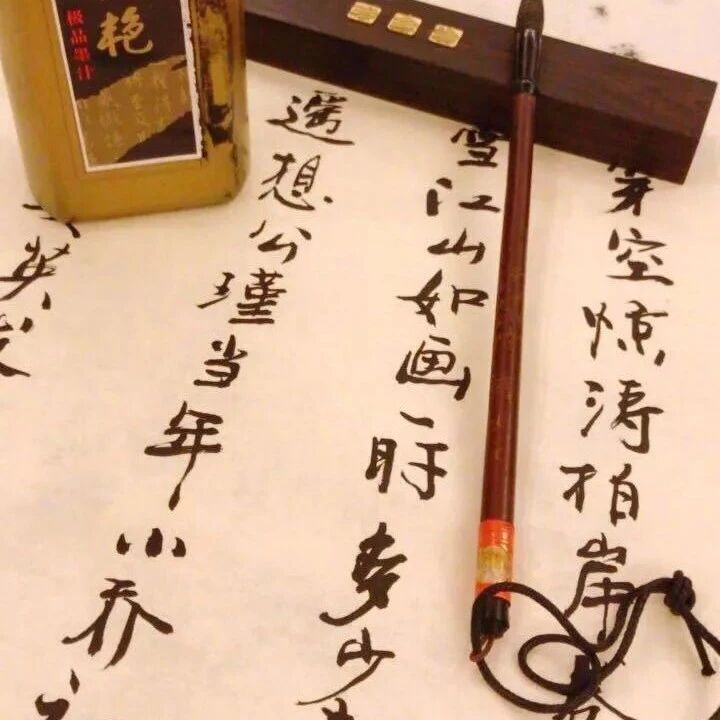 穿空惊涛拍岸
雪江山如画一时多少
遥想公瑾当年小乔
英发
艳
极品墨汁